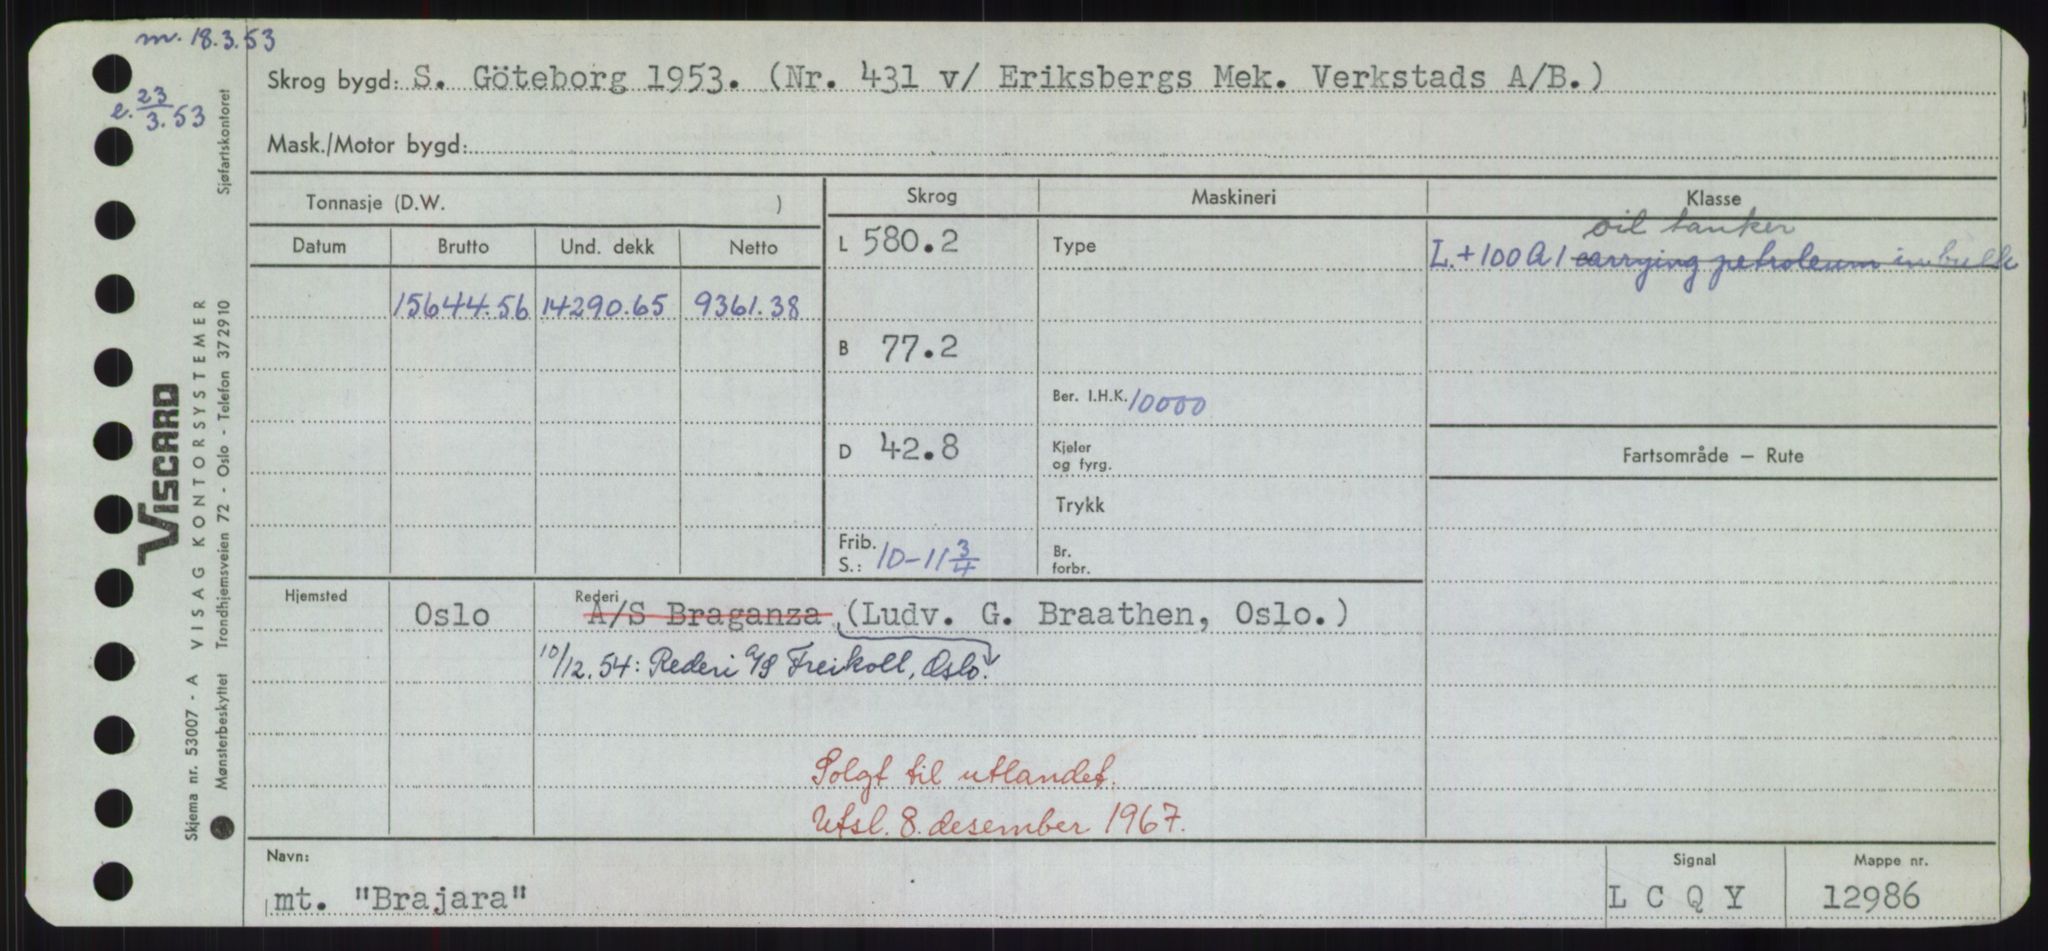 m. 18.3.53
e. 23/3.53
Skrog bygd: S. Göteborg 1953. (Nr. 431 v/ Eriksbergs Mek. Verkstads A/B.)
Mask./Motor bygd:
Tonnasje (D.W. )
Skrog
Maskineri
Klasse
Datum Brutto Und. dekk Netto
L 580.2
Type
oil tanker
L.+100A1 carrying petroleum in bulk
15644.56 14290.65 9361.38
B 77.2
Ber. I.H.K. 10000
D 42.8
Kjeler
og fyrg.
Fartsområde — Rute
Trykk
Frib.
S.: 10-11 3/4
Br.
forbr.
Hjemsted
Oslo
Rederi
A/S Braganza (Ludv. G. Braathen, Oslo.)
10/12.54: Rederi A/S Freikoll, Oslo.
Solgt til utlandet.
Utsl. 8. desember 1967.
Navn:
mt. "Brajara"
Signal
L C Q Y
Mappe nr.
12986
Skjema nr. 53007 - A VISAG KONTORSYSTEMER
VISCARD
Mønsterbeskyttet Trondhjemsveien 72 - Oslo - Telefon 37 2910 Sjøfartskontoret